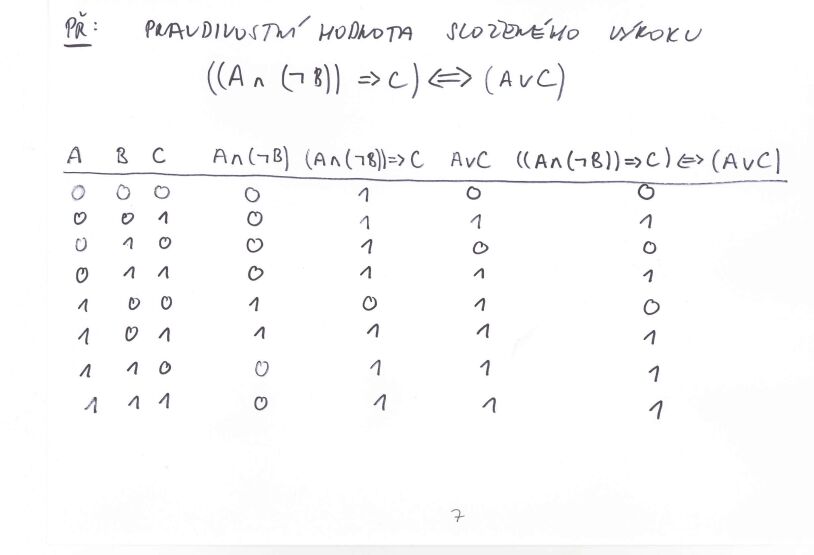 PŘ: PRAVDIVOSTNÍ HODNOTA SLOŽENÉHO VÝROKU
((A ∧ (¬B)) => C) <=> (A ∨ C)
A B C A∧(¬B) (A∧(¬B))=>C A∨C ((A∧(¬B))=>C) <=> (A∨C)
0 0 0 0 1 0 0
0 0 1 0 1 1 1
0 1 0 0 1 0 0
0 1 1 0 1 1 1
1 0 0 1 0 1 0
1 0 1 1 1 1 1
1 1 0 0 1 1 1
1 1 1 0 1 1 1
7